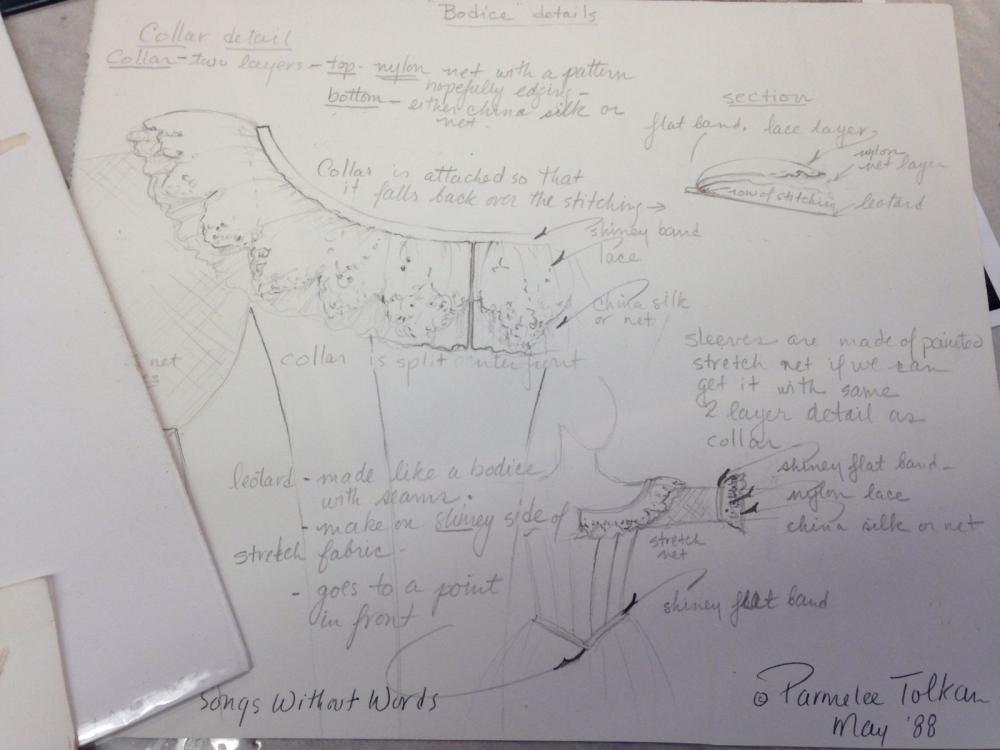 "Bodice" details
Collar detail
Collar - two layers - top - nylon net with a pattern
hopefully edging -
bottom - either china silk or
net.
section
flat band. lace layer
nylon
net layer
row of stitching
leotard
Collar is attached so that
it falls back over the stitching →
shiney band
lace
china silk
or net
net
collar is split center front
sleeves are made of painted
stretch net if we can
get it with same
2 layer detail as
collar
leotard - made like a bodice
with seams.
- make on shiney side of
stretch fabric -
- goes to a point
in front
shiney flat band -
nylon lace
china silk or net
stretch
net
shiney flat band
Songs Without Words
© Parmelee Tolkan
May '88